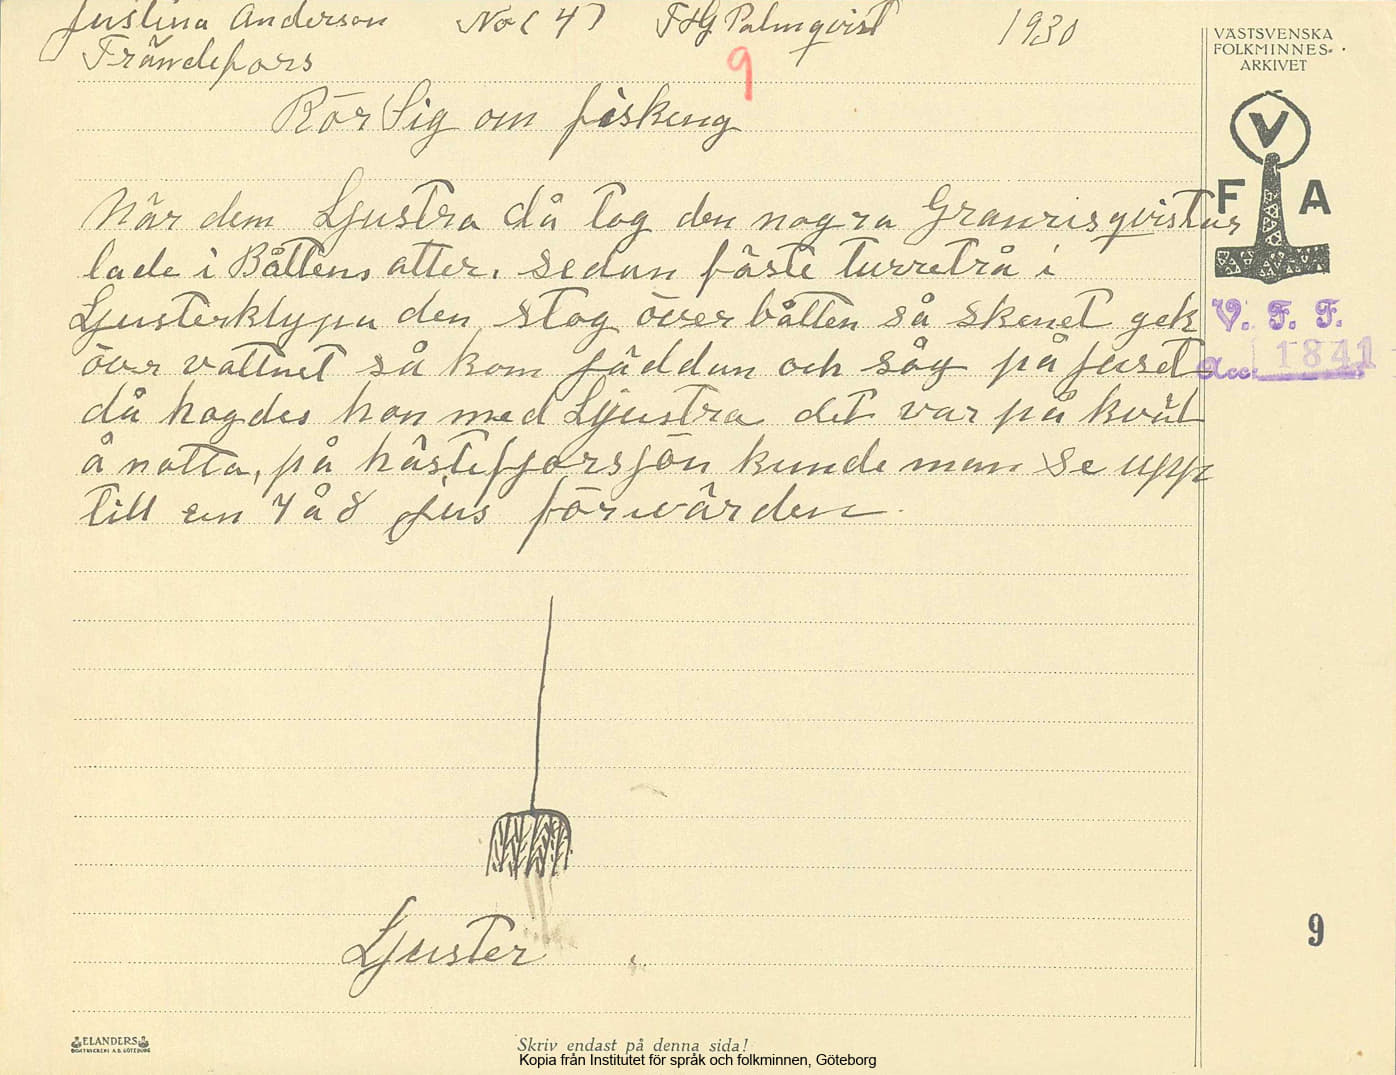 Justina Anderson No ( 4 ) THG Palmqvist 1930
Frändefors
9
Rör Sig om fiskeng
När dem Ljustra då tog den nogra Granrisqvistar
lade i Båttens atter. sedan fäste turreträ i
Ljusterklypa den, stog över båtten så skenet gek
över vattnet så kom jäddan och såg på juset
då hogdes hon med Ljustra det var på kväl
å natta, på hästefjorsjön kunde man se upp
till en 7 å 8 jus förwärden.
Ljuster
VÄSTSVENSKA
FOLKMINNES-
ARKIVET
V
F A
V. F. F.
Acc. 1841
9
ELANDERS
BOKTRYCKERI A.B. GÖTEBORG
Skriv endast på denna sida!
Kopia från Institutet för språk och folkminnen, Göteborg